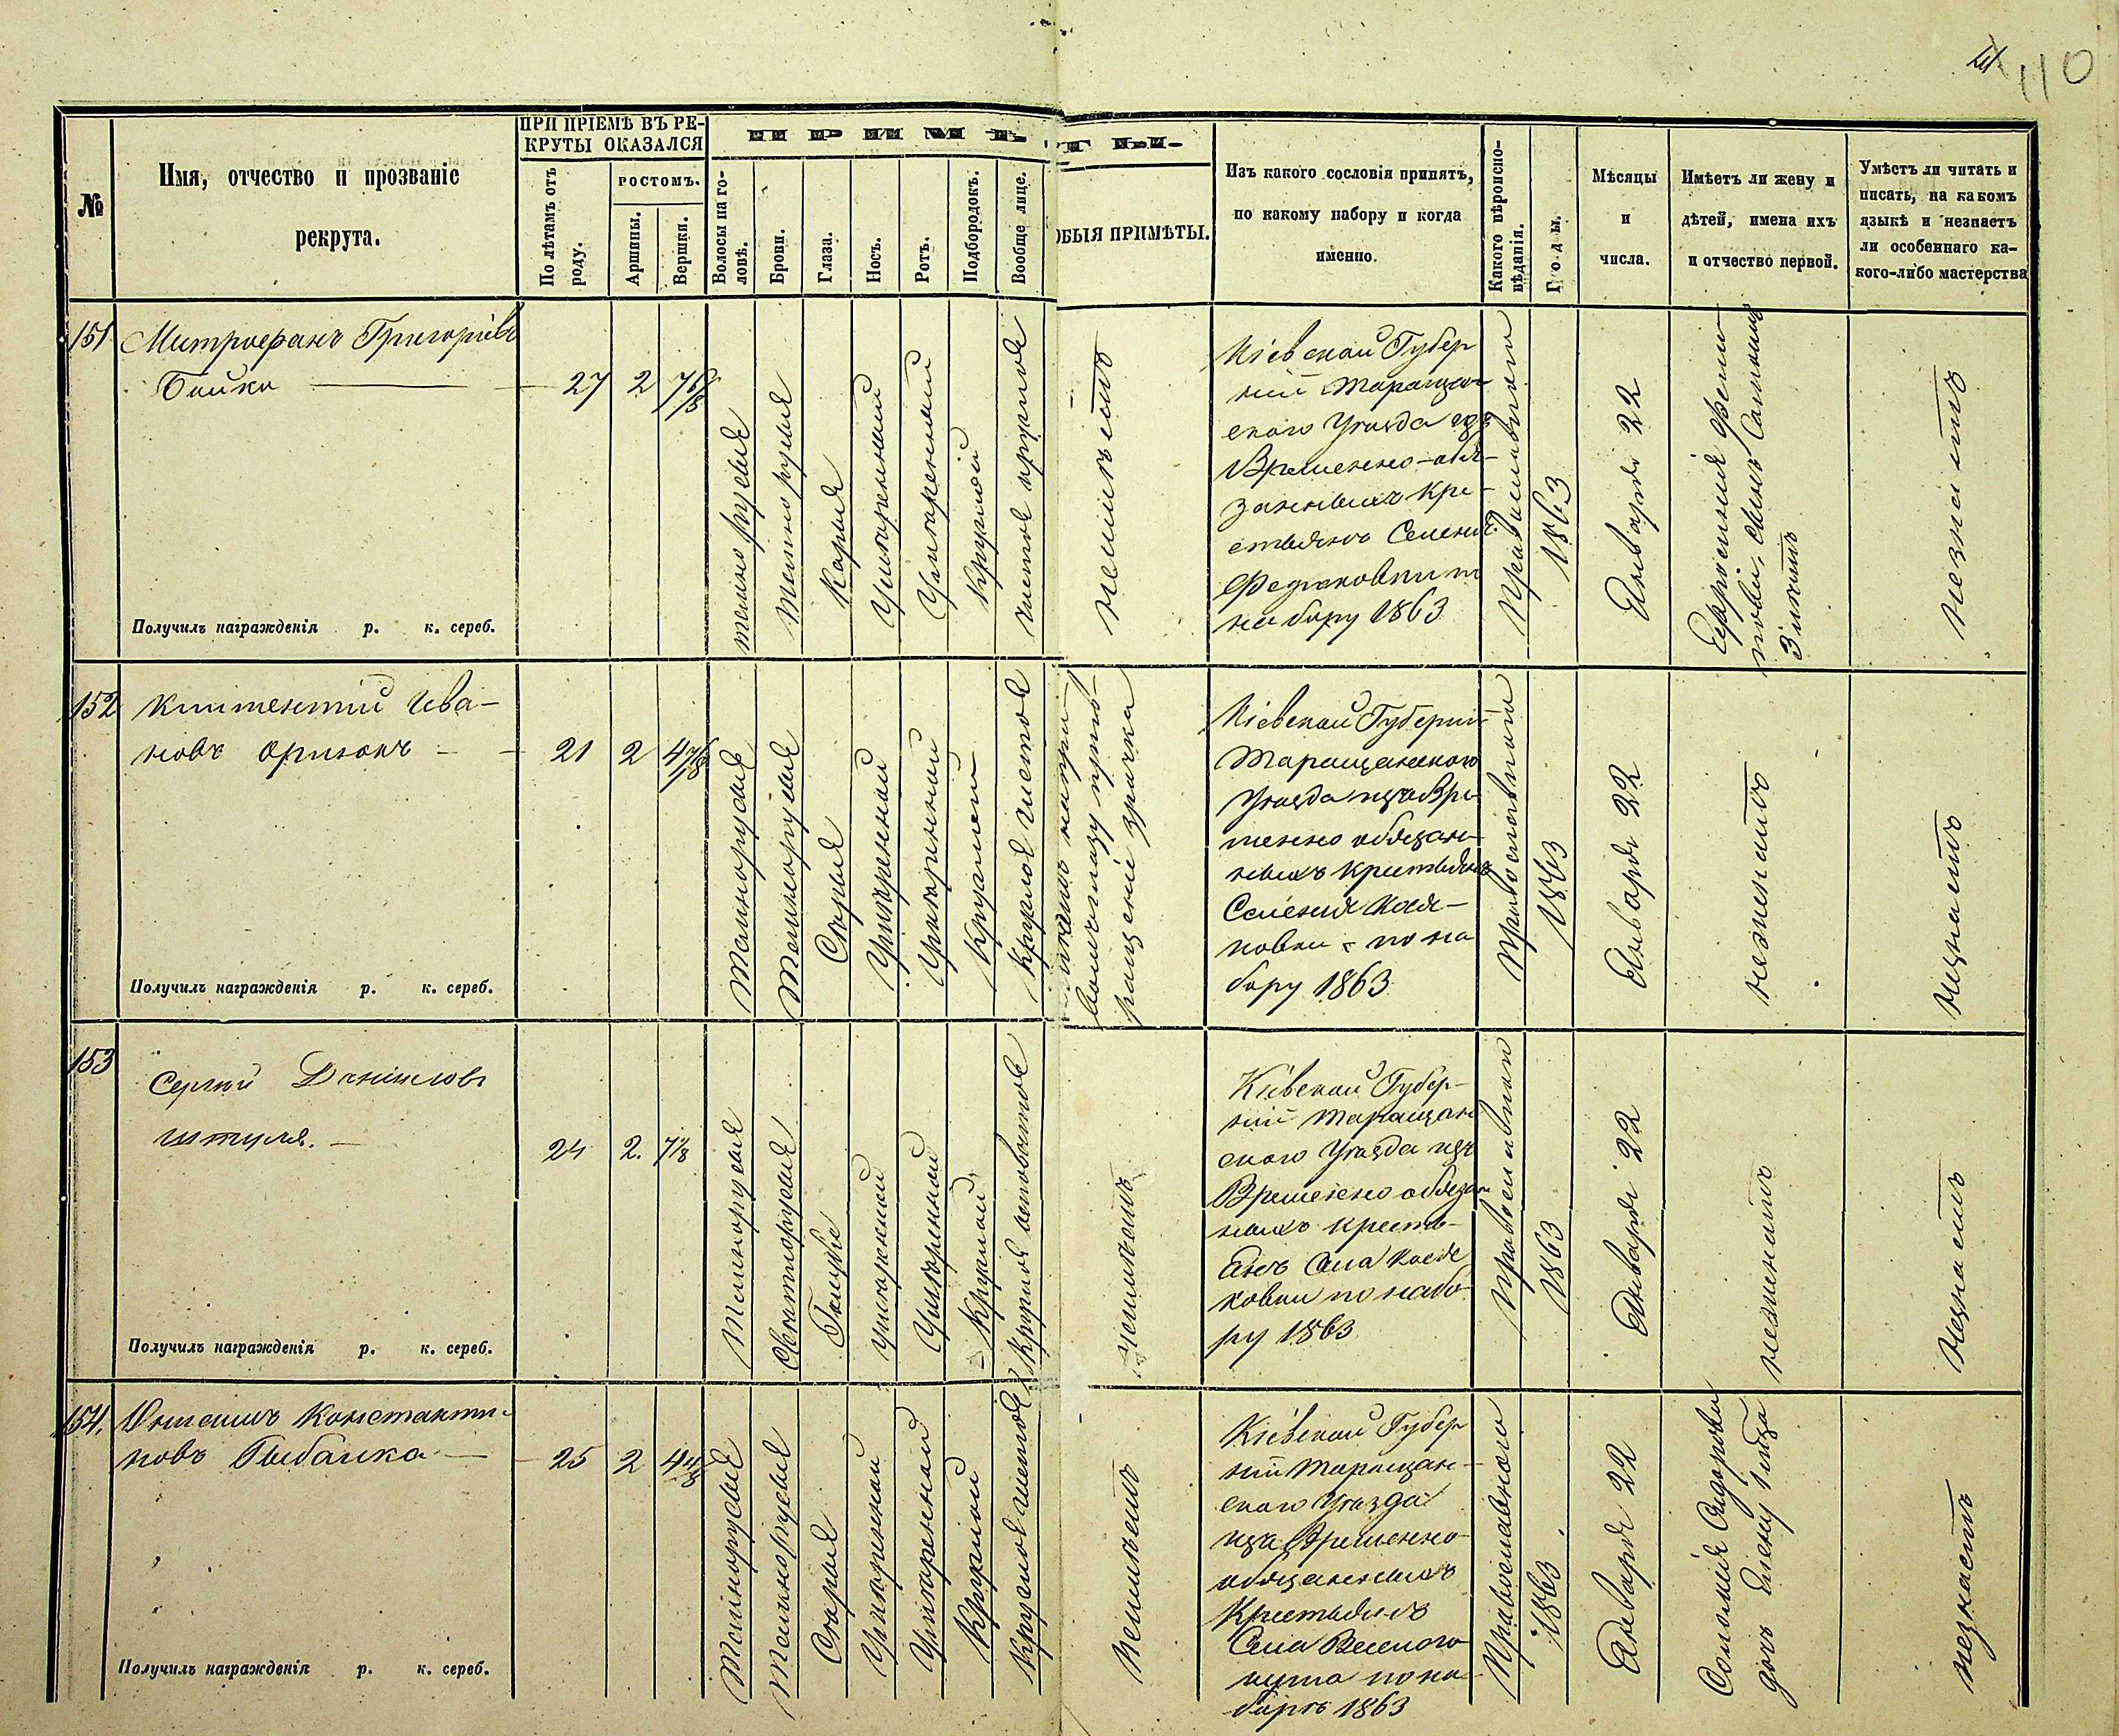 110
№
Имя, отчество и прозваніе
рекрута.
ПРИ ПРІЕМѢ ВЪ РЕ-
КРУТЫ ОКАЗАЛСЯ
По лѣтамъ отъ
роду.
РОСТОМЪ.
Аршины.
Вершки.
ПРИМѢТЫ.
Волосы на го-
ловѣ.
Брови.
Глаза.
Носъ.
Ротъ.
Подбородокъ.
Вообще лице.
ОБЫЯ ПРИМѢТЫ.
Изъ какого сословія принятъ,
по какому набору и когда
именно.
Какого вѣроиспо-
вѣданія.
Годы.
Мѣсяцы
и
числа.
Имѣетъ ли жену и
дѣтей, имена ихъ
и отчество первой.
Умѣетъ ли читать и
писать, на какомъ
языкѣ и незнаетъ
ли особеннаго ка-
кого-либо мастерства
151
Митрофанъ Григоріевъ
Бойко
27
2
7 6/8
темнорусыя
темнорусыя
Карыя
Умѣренный
Умѣренный
Круглый
чистое круглое
неимѣетъ
Кіевской Губер
ніи Таращан
скаго Уѣзда изъ
Временно-обя-
занныхъ Кре-
стьянъ Селенія
набору 1863
Православнаго
1863
Января 22
3 лѣтъ
незнаетъ
Получилъ награжденія р. к. сереб.
152
Ива-
новъ
21
2
4 7/8
Темнорусыя
Темнорусыя
Сѣрыя
Умѣренный
Умѣренный
Круглый
Круглое чистое
ращеніе зрачка
Кіевской Губерніи
Таращанскаго
Уѣзда изъ Вре-
менно обязан-
ныхъ крестьянъ
Селенія Кося-
ковки по на
бору 1863
Православнаго
1863
Января 22
неженатъ
незнаетъ
Получилъ награжденія р. к. сереб.
153
Сергѣй Даниловъ
Штуля.
24
2.
7 1/8
Темнорусыя
Свѣтлорусыя
Голубые
умѣренный
Умѣренный
Круглый
Круглое веснов
неимѣетъ
Кіевской Губер-
ніи Таращан
скаго Уѣзда изъ
Временно обязан
ныхъ кресть-
янъ Села Кося
ковки по набо-
ру 1863
Православнаго
1863
Января 22
неженатъ
незнаетъ
Получилъ награжденія р. к. сереб.
154.
Константи-
новъ Рыбалка
25
2
4 4/8
Темнорусыя
Темнорусыя
Сѣрыя
Умѣренный
Умѣренный
Круглый
Круглое чистое
Неимѣетъ
Кіевской Губер
ніи Таращан-
скаго Уѣзда
изъ Временно
обязанныхъ
Крестьянъ
Села Веселого
кута по на
борѣ 1863
Православнаго
1863
Января 22
Соломія Сидорова
дочь Елену 1 года
незнаетъ
Получилъ награжденія р. к. сереб.